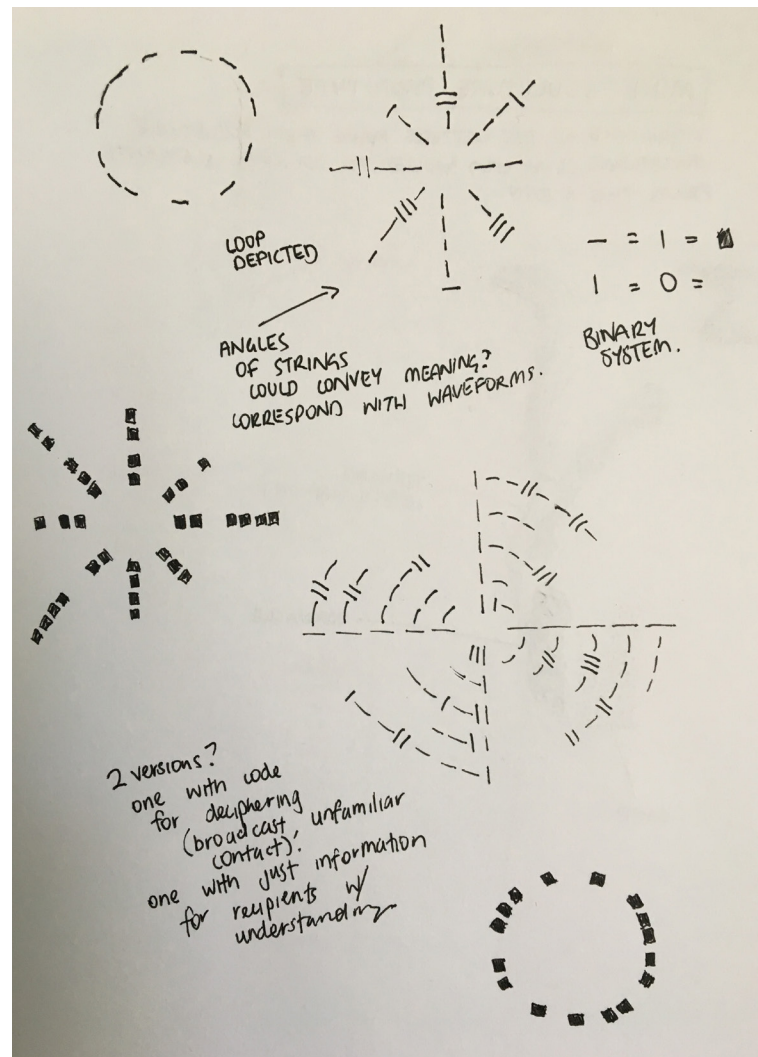 LOOP
DEPICTED
ANGLES
OF STRINGS
COULD CONVEY MEANING?
CORRESPOND WITH WAVEFORMS.
– = 1 = ■
| = 0 =
BINARY
SYSTEM.
2 versions?
one with code
for deciphering
(broadcast, unfamiliar
contact).
one with just information
for recipients w/
understanding.